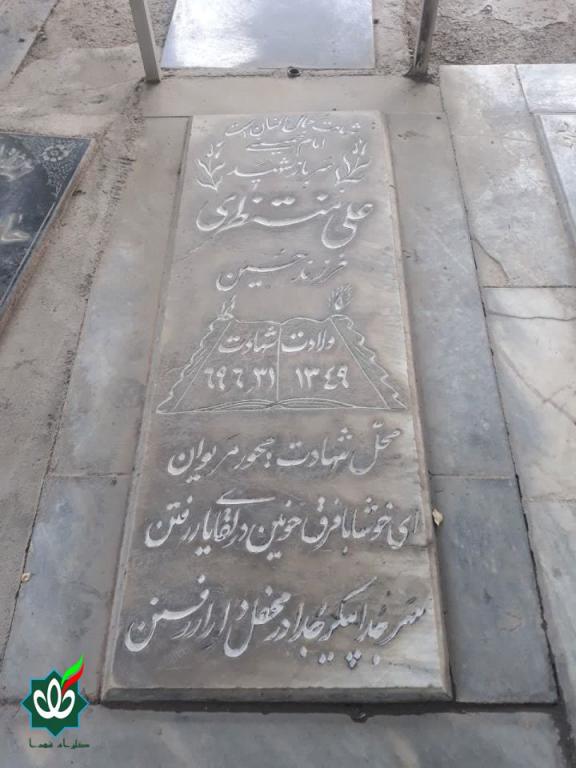 شهادت
امام خمینی
سرباز شهید
علی منتظری
فرزند حسین
ولادت شهادت
۱۳٤۹ ۳۱ ٦ ٦۹
محل شهادت محور مریوان
ای خوشا با فرق خونین در لقای یار رفتن
سر جدا پیکر جدا در محفل دلدار رفتن
گلزار شهدا